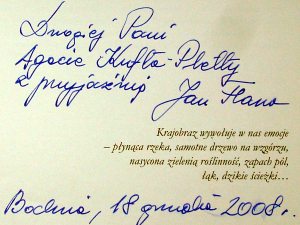 Drogiej Pani
Agacie Kufta-Pletty
z przyjaźnią Jan
Krajobraz wywołuje w nas emocje
– płynąca rzeka, samotne drzewo na wzgórzu,
nasycona zielenią roślinność, zapach pól,
łąk, dzikie ścieżki…
Bochnia, 18 grudnia 2008 r.